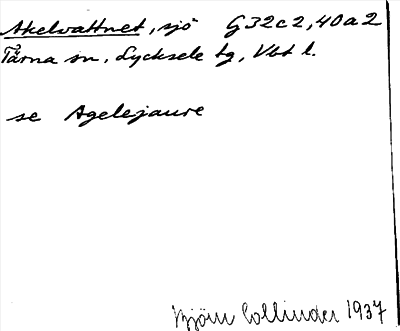 Akelvattnet, sjö G32c2,40a2
Tärna sn, Lycksele tg, Vbt l.
se Agelejaure
Björn Collinder 1937